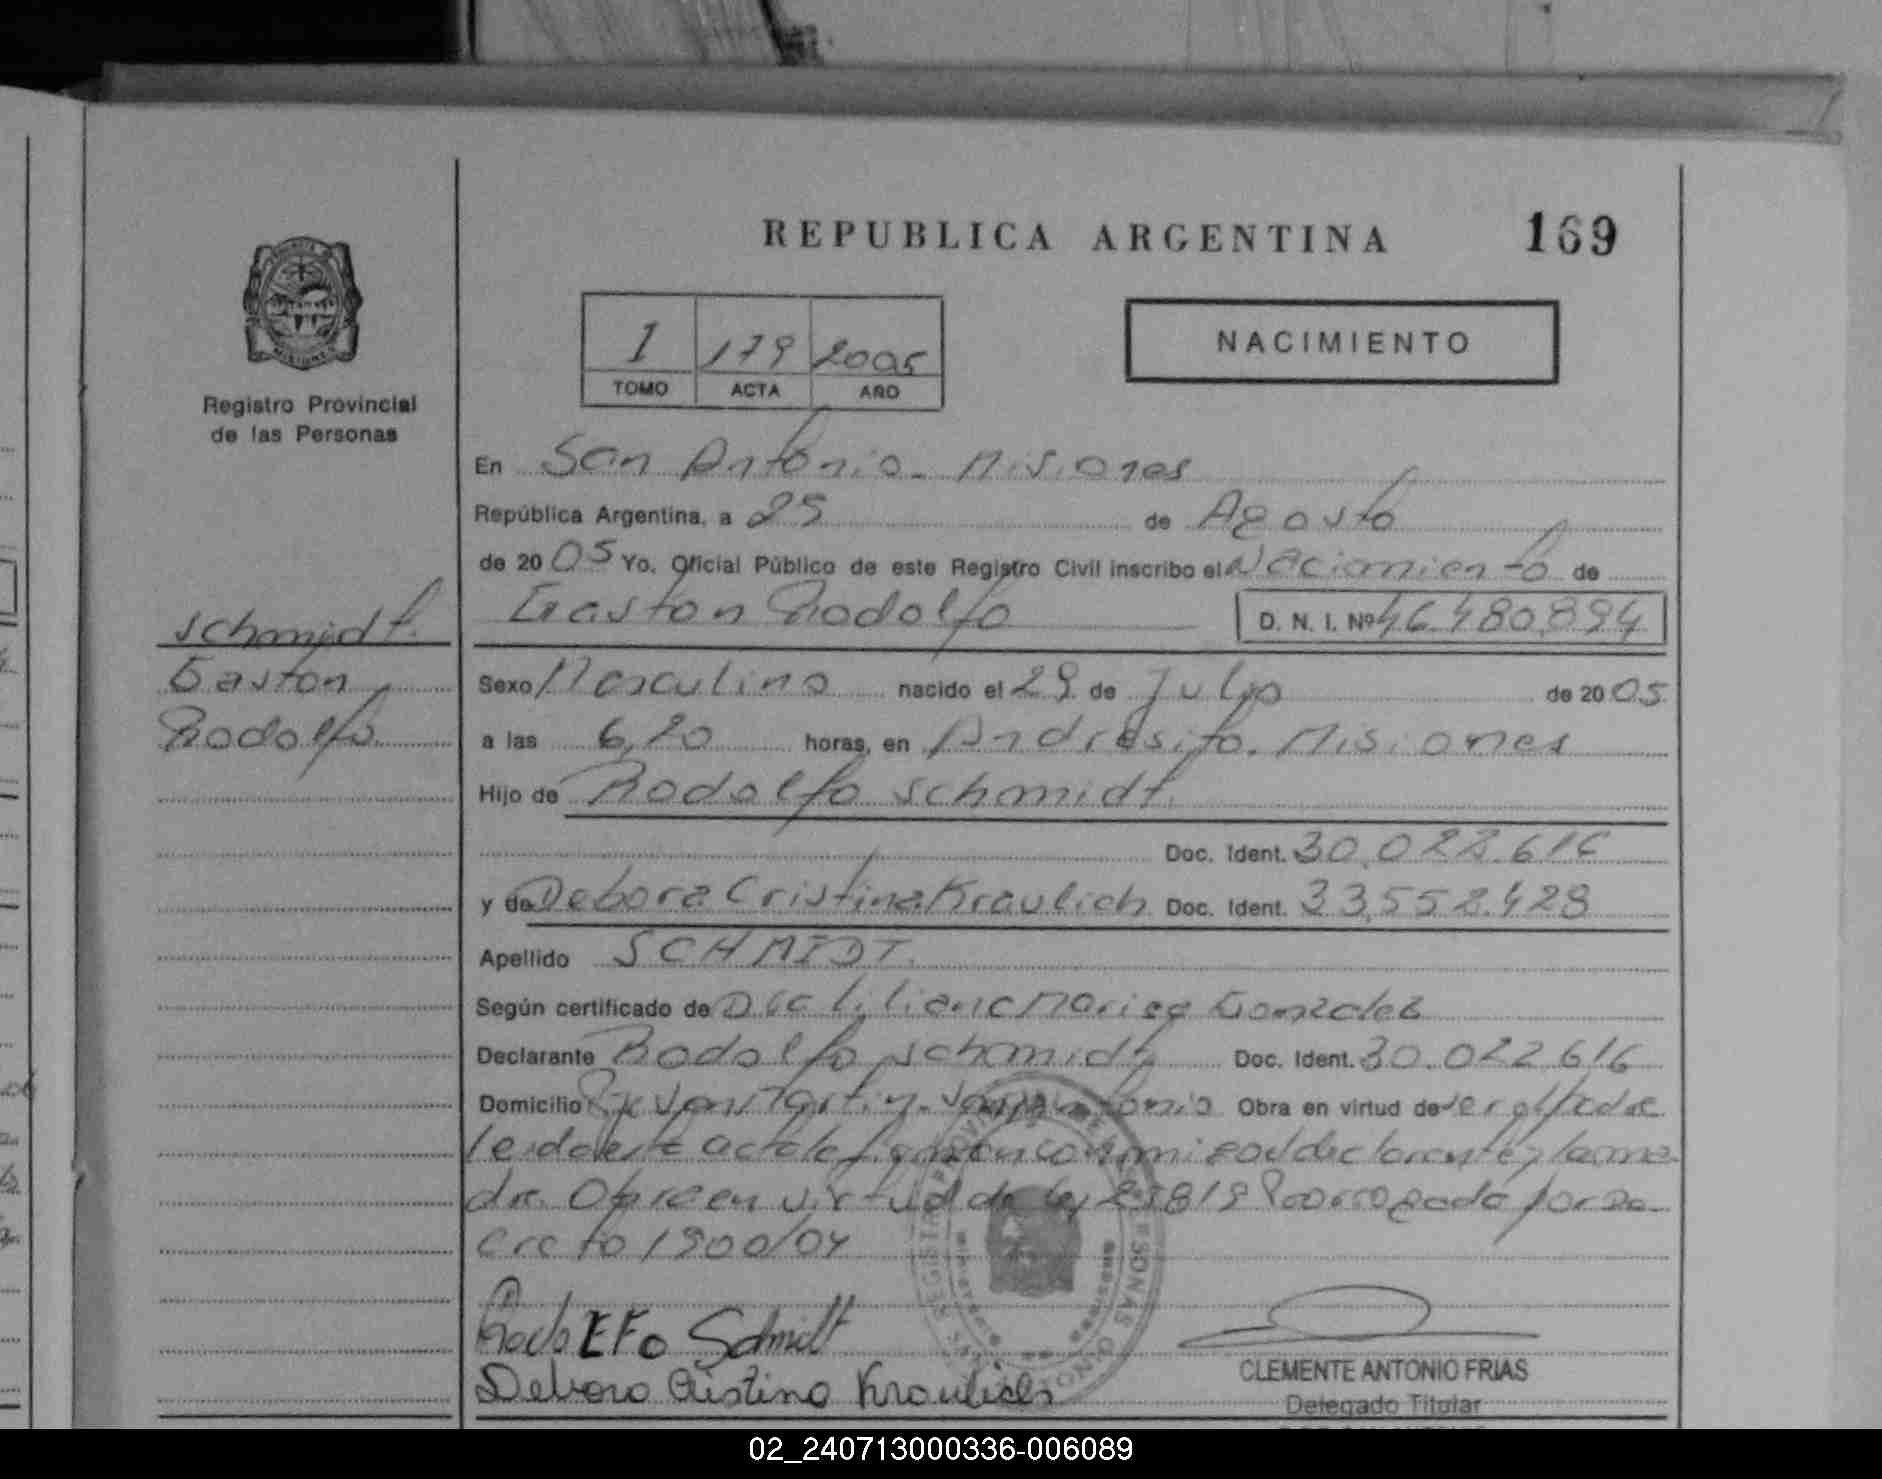 REPUBLICA ARGENTINA
169
1 179 2005
TOMO ACTA AÑO
NACIMIENTO
Registro Provincial
de las Personas
En San Antonio - Misiones
República Argentina, a 25 de Agosto
de 2005 Yo, Oficial Público de este Registro Civil inscribo el Nacimiento de
Gaston Rodolfo D. N. I. Nº 46.480.894
Schmidt.
Gaston
Rodolfo.
Sexo Masculino nacido el 29 de Julio de 2005
a las 6,20 horas, en Andresito. Misiones
Hijo de Rodolfo Schmidt.
Doc. Ident. 30.022.616
y de Debora Cristina Kraulich Doc. Ident. 33.552.428
Apellido SCHMIDT.
Según certificado de Dra Liliana Marisa Gonzalez
Declarante Rodolfo Schmidt Doc. Ident. 30.022.616
Domicilio San Martin. San Antonio Obra en virtud de ser el padre
leida este acta la firman conmigo el declarante y la ma
dre. Obra en virtud de ley 25819 Prorrogada por De
creto 1900/04
Rodolfo Schmidt
Debora Cristina Kraulich
CLEMENTE ANTONIO FRIAS
Delegado Titular
02_240713000336-006089